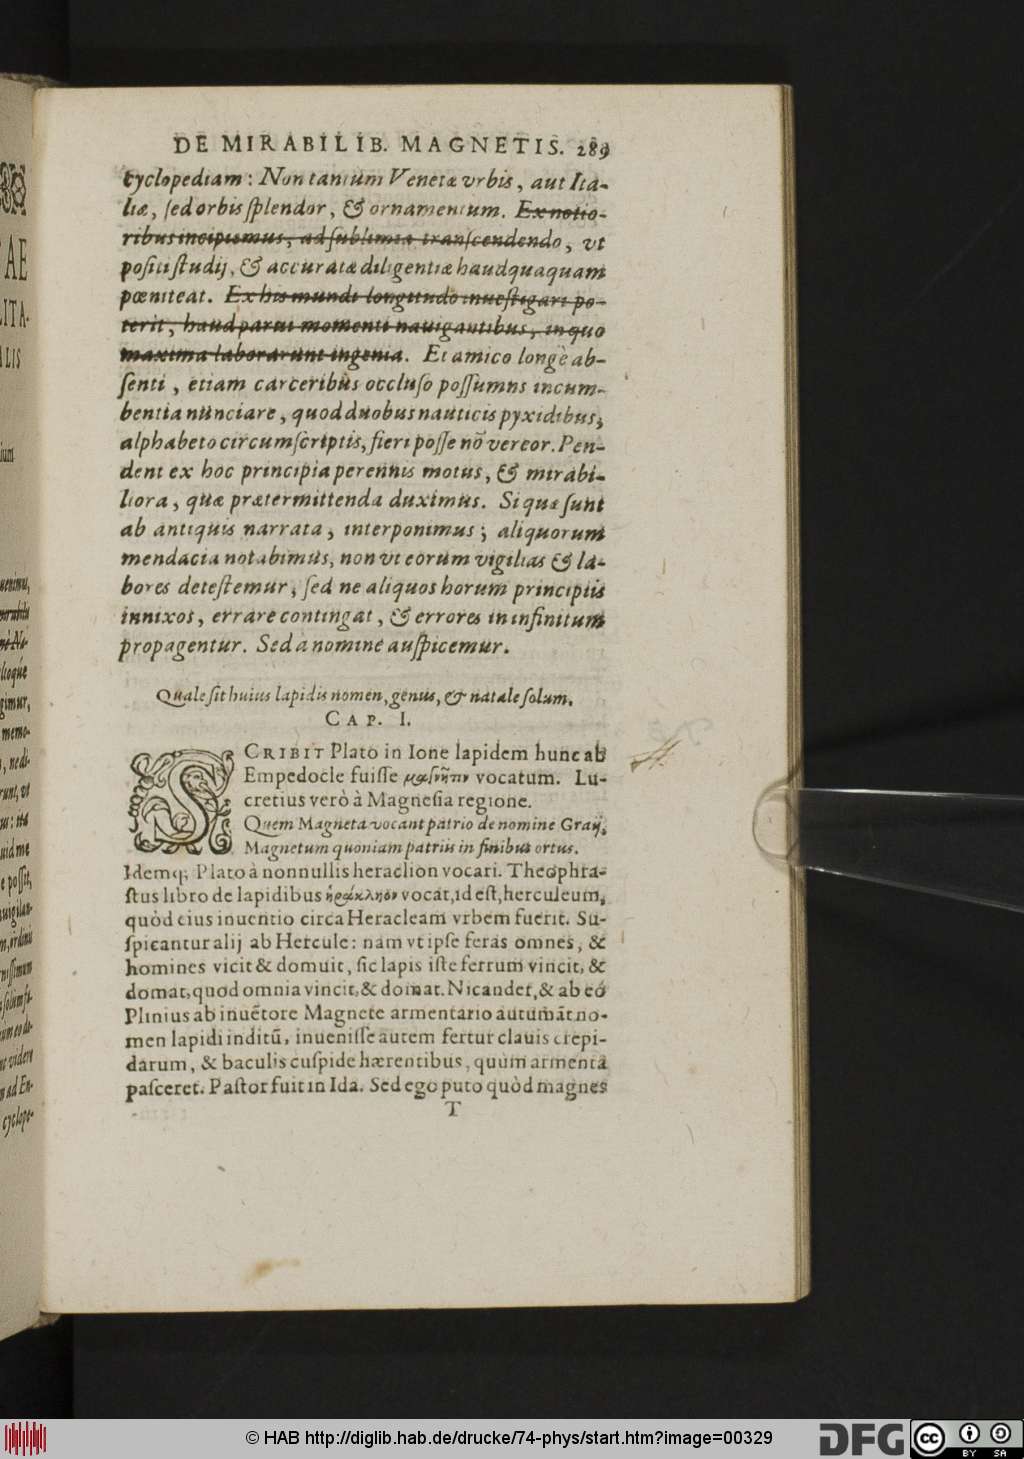 DE MIRABILIB. MAGNETIS. 289
cyclopediam: Non tantùm Venetæ vrbis, aut Ita-
liæ, sed orbis splendor, & ornamentum. Ex notio-
ribus incipiemus, ad sublimia transcendendo, vt
positi studij, & accuratæ diligentiæ haudquaquam
pœniteat. Ex his mundi longitudo inuestigari po-
terit, haud parui momenti nauigantibus, in quo
maxima laborarunt ingenia. Et amico longè ab-
senti, etiam carceribus occluso possumus incum-
bentia nunciare, quod duobus nauticis pyxidibus,
alphabeto circumscriptis, fieri posse nõ vereor. Pen-
dent ex hoc principia perennis motus, & mirabi-
liora, quæ prætermittenda duximus. Si qua sunt
ab antiquis narrata, interponimus; aliquorum
mendacia notabimus, non vt eorum vigilias & la-
bores detestemur, sed ne aliquos horum principiis
innixos, errare contingat, & errores in infinitum
propagentur. Sed à nomine auspicemur.
Quale sit huius lapidis nomen, genus, & natale solum.
CAP. I.
SCRIBIT Plato in Ione lapidem hunc ab
Empedocle fuisse μαγνῆτιν vocatum. Lu-
cretius verò à Magnesia regione.
Quem Magneta vocant patrio de nomine Graij,
Magnetum quoniam patriis in finibus ortus.
Idemq; Plato à nonnullis heraclion vocari. Theophra-
stus libro de lapidibus ἡράκληον vocat, id est, herculeum,
quòd eius inuentio circa Heracleam vrbem fuerit. Su-
spicantur alij ab Hercule: nam vt ipse feras omnes, &
homines vicit & domuit, sic lapis iste ferrum vincit, &
domat, quod omnia vincit, & domat. Nicander, & ab eo
Plinius ab inuẽtore Magnete armentario autumãt no-
men lapidi inditũ, inuenisse autem fertur clauis crepi-
darum, & baculis cuspide hærentibus, quùm armenta
pasceret. Pastor fuit in Ida. Sed ego puto quòd magnes
T
© HAB http://diglib.hab.de/drucke/74-phys/start.htm?image=00329
DFG
cc
BY SA